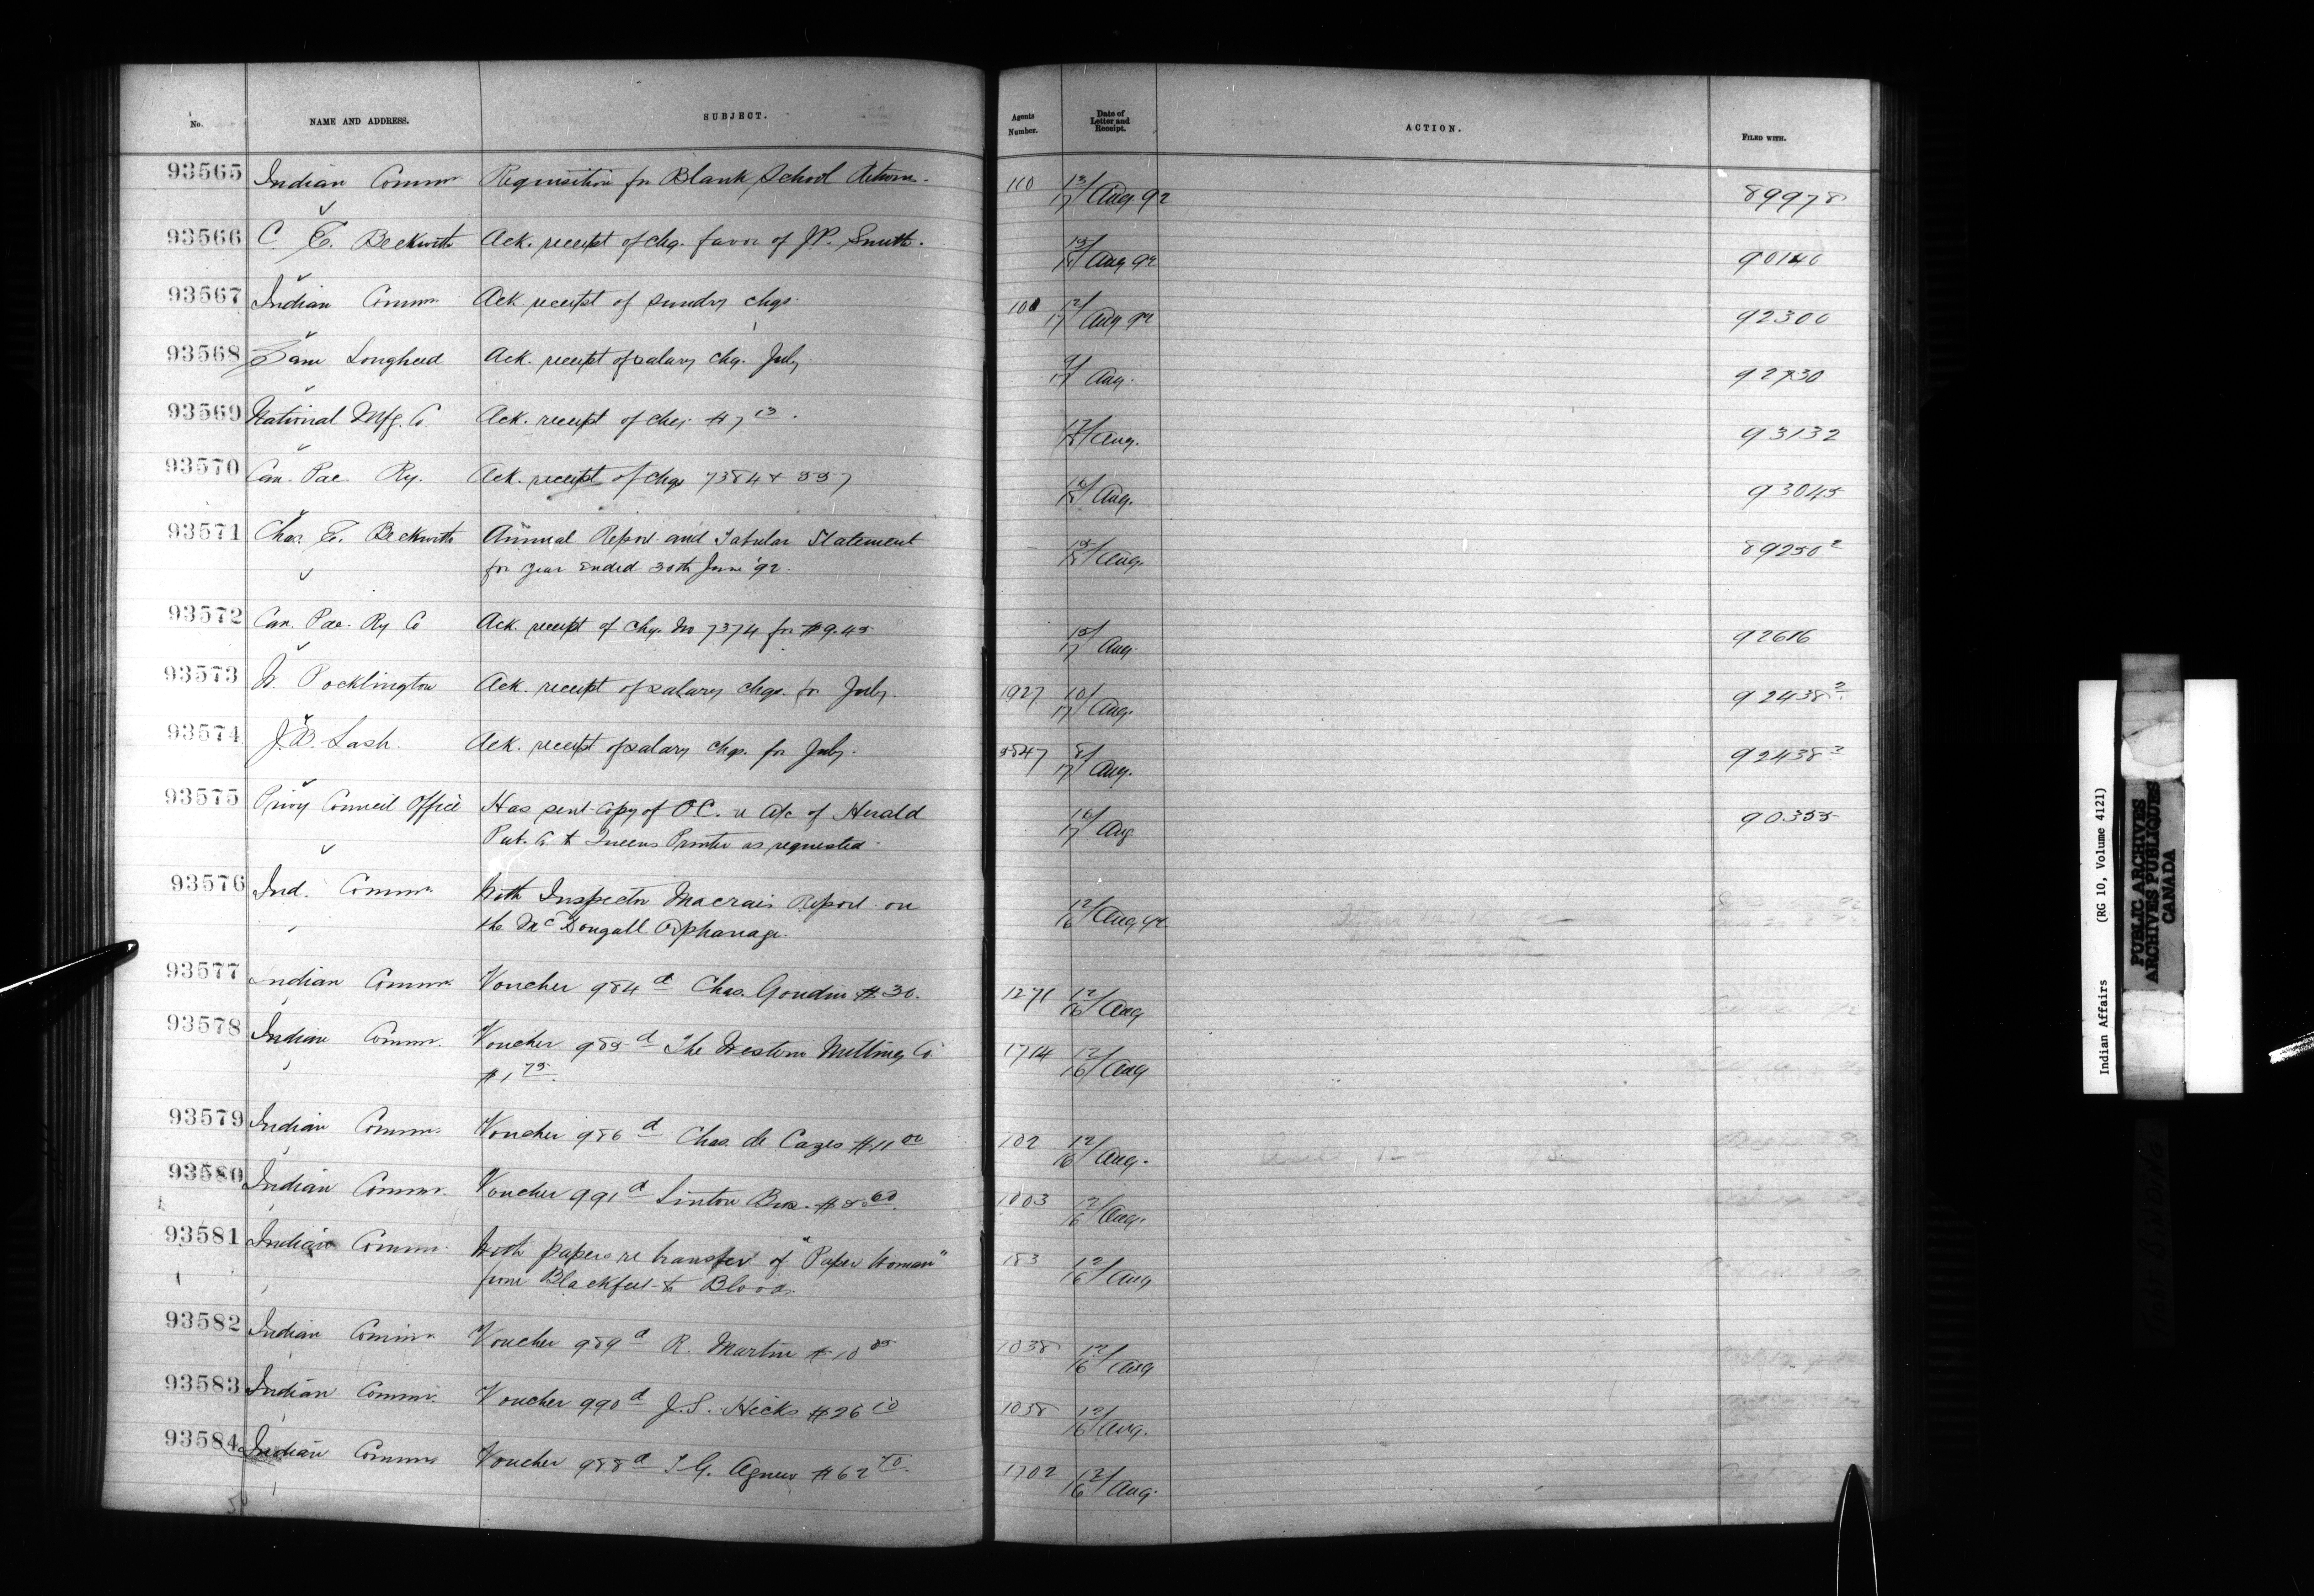 No. NAME AND ADDRESS. SUBJECT. Agents Number. Date of Letter and Receipt. ACTION. FILED WITH.
93565 Indian Commr Requisition for Blank School Returns. 110 13/17 Aug. 92 89978
93566 C. E. Beckwith Ack. receipt of chq. favor of J.P. Smith. 15/17 Aug 92 90140
93567 Indian Commr Ack receipt of sundry chqs. 100 12/17 Aug 92 92300
93568 Sam Lougheed Ack. receipt of salary chq. July. 9/17 Aug. 92730
93569 National Mfg. Co. Ack. receipt of chq. #7 13. Aug. 93132
93570 Can. Pac Ry. Ack. receipt of chqs 7384 & 557 Aug. 93045
93571 Chas. E. Beckwith Annual Report and Tabular Statement 15/17 Aug. 89250 2
for year ended 30th June '92.
93572 Can. Pac. Ry Co Ack. receipt of chq. No 7374 for $9.45 15/17 Aug. 92616
93573 W. Pocklington Ack. receipt of salary chqs. for July. 1927 10/17 Aug. 92438 2
93574 J.B. Lash. Ack. receipt of salary chqs. for July. 8/17 Aug. 92438 2
93575 Privy Council Office Has sent copy of O C. re a/c of Herald 16/17 Aug 90355
Pub. Co to Queens Printer as requested.
93576 Ind. Commr. With Inspector Macrae's Report on 12/16 Aug 92
the McDougall Orphanage.
93577 Indian Commr. Voucher 984 d Chas. Goudin $30. 1271 12/16 Aug
93578 Indian Commr. Voucher 985 d The Western Milling Co 1714 12/16 Aug
$1 75.
93579 Indian Commr. Voucher 986 d Chas. de Cazes $11 00 102 12/16 Aug.
93580 Indian Commr. Voucher 991 d Linton Bros. $8 60. 1003 12/16 Aug.
93581 Indian Commr. With papers re transfer of "Paper Woman" 183 12/16 Aug
from Blackfeet to Bloods.
93582 Indian Commr Voucher 989 d R. Martin $10 85 1038 12/16 Aug
93583 Indian Commr. Voucher 990 d J.S. Hicks $26 10 1038 12/16 Aug.
93584 Indian Commr Voucher 988 d Agnew $62 70. 1702 12/16 Aug.
Indian Affairs (RG 10, Volume 4121)
PUBLIC ARCHIVES
ARCHIVES PUBLIQUES
CANADA